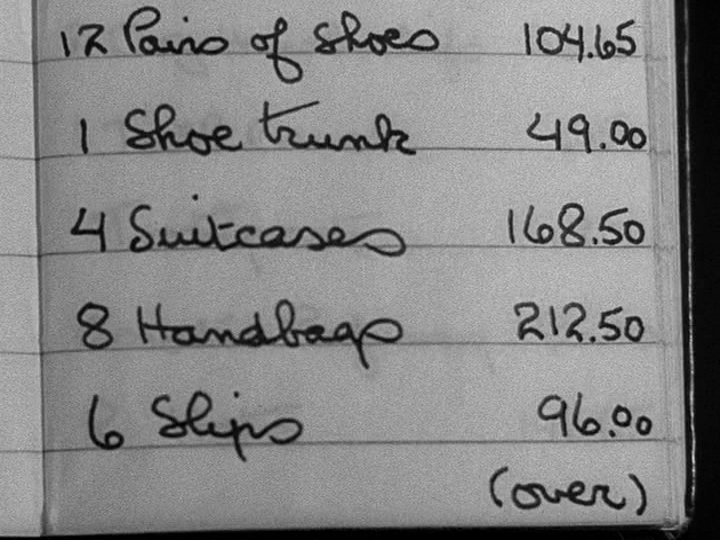 12 Pairs of Shoes 104.65
1 Shoe trunk 49.00
4 Suitcases 168.50
8 Handbags 212.50
6 Slips 96.00
(over)